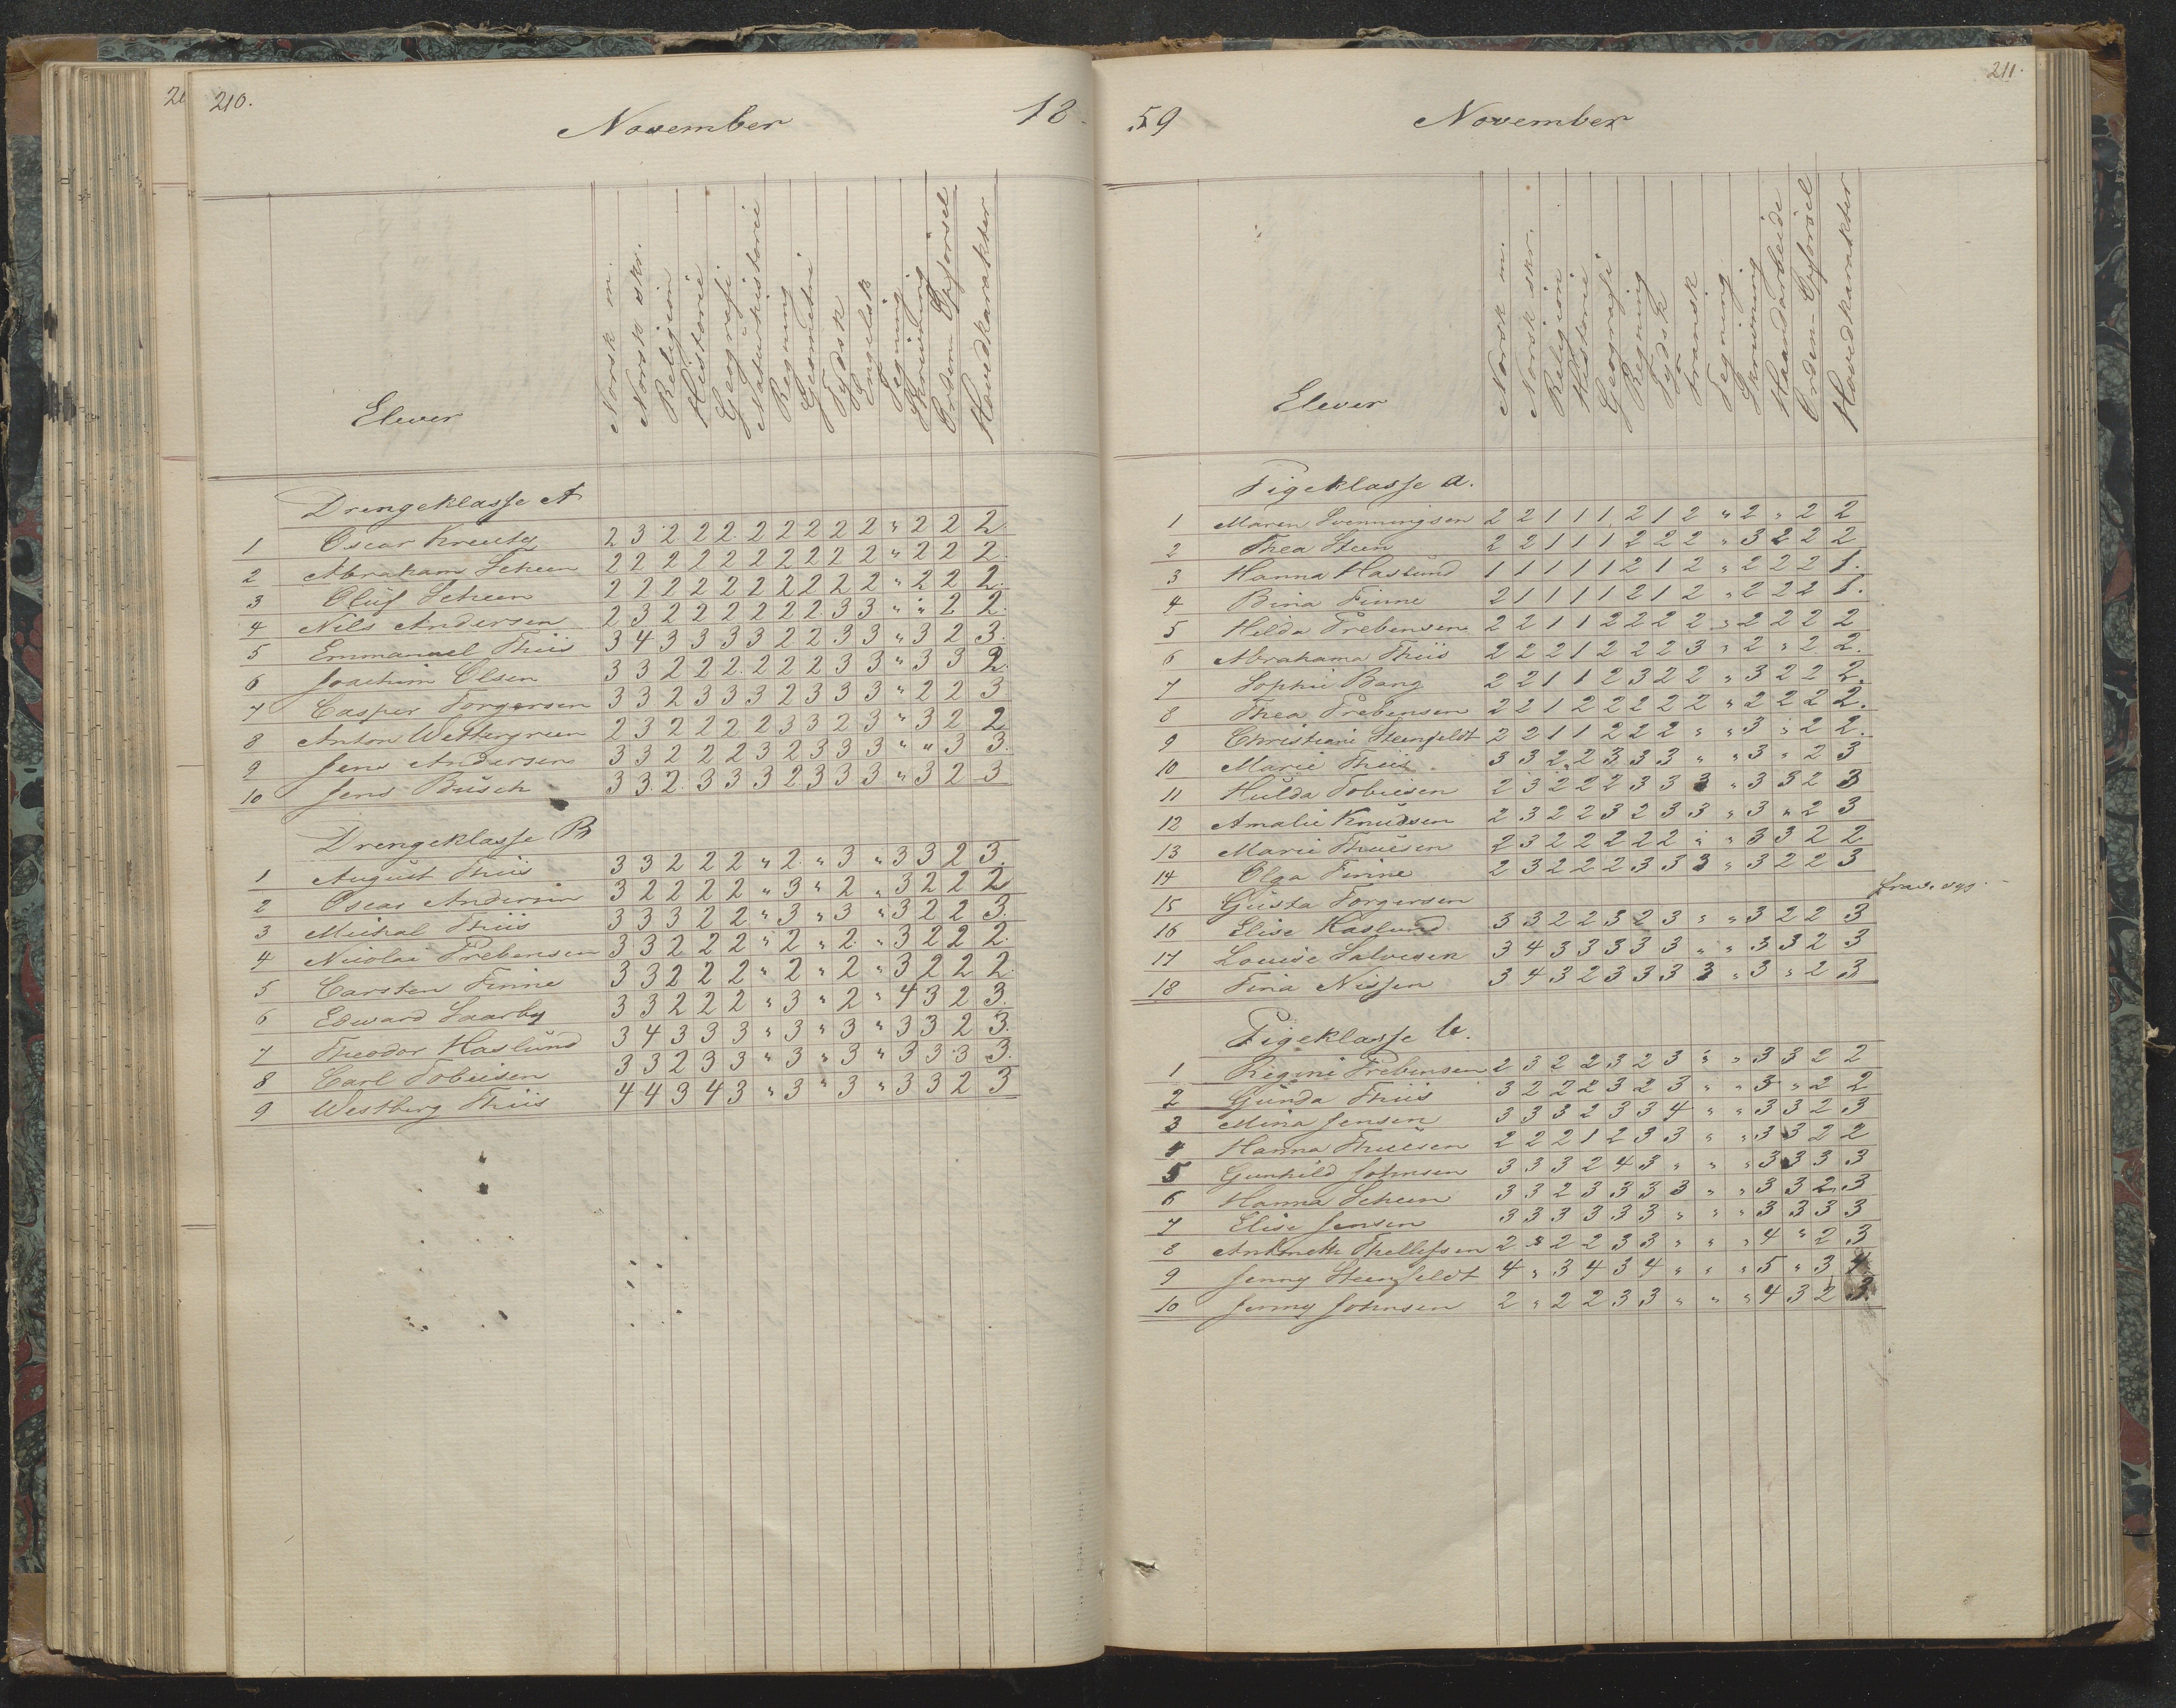 210.
November
18
Elever
Norsk m.
Norsk skr.
Religion
Historie
Geografi
Naturhistorie
Regning
Geometri
Tydsk
Engelsk
Tegning
Skrivning
Orden-Opførsel
Hovedkarakter
Drengeklasse A
1 Oscar Kreutz 2 3 2 2 2 2 2 2 2 2 " 2 2 2
2 Abraham Scheen 2 2 2 2 2 2 2 2 2 2 " 2 2 2
3 Oluf Scheen 2 2 2 2 2 2 2 2 2 2 " 2 2 2
4 Nils Andersen 2 3 2 2 2 2 2 2 3 3 " " 2 2
5 Emmanuel Thiis 3 4 3 3 3 3 2 2 3 3 " 3 2 3
6 Joachim Olsen 3 3 2 2 2 2 2 2 3 3 " 3 3 2
7 Casper Torgersen 3 3 2 3 3 3 2 3 3 3 " 2 2 3
8 Anton Wettergreen 2 3 2 2 2 2 3 3 2 3 " 3 2 2
9 Jens Andersen 3 3 2 2 2 3 2 3 3 3 " " 3 3
10 Jens Busch 3 3 2 3 3 3 2 3 3 3 " 3 2 3
Drengeklasse B
1 August Thiis 3 3 2 2 2 " 2 " 3 " 3 3 2 3
2 Oscar Andersen 3 2 2 2 2 " 3 " 2 " 3 2 2 2
3 Michal Thiis 3 3 3 2 2 " 3 " 3 " 3 2 2 3
4 Nicolai Prebensen 3 3 2 2 2 " 2 " 2 " 3 2 2 2
5 Carsten Finne 3 3 2 2 2 " 2 " 2 " 3 2 2 2
6 Edward Saarby 3 3 2 2 2 " 3 " 2 " 4 3 2 3
7 Theodor Haslund 3 4 3 3 3 " 3 " 3 " 3 3 2 3
8 Carl Tobiesen 3 3 2 3 3 " 3 " 3 " 3 3 3 3
9 Westberg Thiis 4 4 3 4 3 " 3 " 3 " 3 3 2 3
211.
59
November
Elever
Norsk m.
Norsk skr.
Religion
Historie
Geografi
Regning
Tydsk
Fransk
Tegning
Skrivning
Haandarbeide
Orden-Opførsel
Hovedkarakter
Pigeklasse a.
1 Maren Svenningsen 2 2 1 1 1 2 1 2 " 2 " 2 2
2 Thea Steen 2 2 1 1 1 2 2 2 " 3 2 2 2
3 Hanna Haslund 1 1 1 1 1 2 1 2 " 2 2 2 1.
4 Bina Finne 2 1 1 1 1 2 1 2 " 2 2 2 1.
5 Hilda Prebensen 2 2 1 1 2 2 2 2 " 2 2 2 2
6 Abrahama Thiis 2 2 2 1 2 2 2 3 " 2 " 2 2.
7 Sophie Bang 2 2 1 1 2 3 2 2 " 3 2 2 2.
8 Thea Prebensen 2 2 1 2 2 2 2 2 " 2 2 2 2.
9 Christiani Steenfeldt 2 2 1 1 2 2 2 " " 3 " 2 2.
10 Marie Thiis 3 3 2 2 3 3 3 " " 3 " 2 3
11 Hulda Tobiesen 2 3 2 2 2 3 3 3 " 3 3 2 3
12 Amalie Knudsen 2 3 2 2 3 2 3 3 " 3 " 2 3
13 Marie Thuesen 2 3 2 2 2 2 2 " " 3 3 2 2
14 Olga Finne 2 3 2 2 2 3 3 3 " 3 2 2 3
15 Gusta Torgersen
16 Elise Haslund 3 3 2 2 3 2 3 " " 3 2 2 3
17 Louise Salvesen 3 4 3 3 3 3 3 " " 3 3 2 3
18 Tina Nissen 3 4 3 2 3 3 3 3 " 3 " 2 3
Pigeklasse b.
1 Regine Prebensen 2 3 2 2 3 2 3 " " 3 3 2 2
2 Gunda Thiis 3 2 2 2 3 2 3 " " 3 " 2 2
3 Mina Jensen 3 3 3 2 3 3 4 " " 3 3 2 3
4 Hanna Thuesen 2 2 2 1 2 3 3 " " 3 3 2 2
5 Gunhild Johnsen 3 3 3 2 4 3 " " " 3 3 3 3
6 Hanna Scheen 3 3 2 3 3 3 3 " " 3 3 2 3
7 Elise Jensen 3 3 3 3 3 3 " " " 3 3 3 3
8 Antonette Thellefsen 2 3 2 2 3 3 " " " 4 " 2 3
9 Jenny Steenfeldt 4 " 3 4 3 4 " " " 5 " 3 4
10 Jenny Johnsen 2 " 2 2 3 3 " " " 4 3 2 3